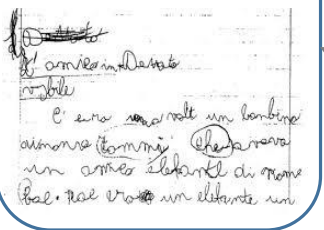 L'amico inDevato
vybile
C'era una volt un bambino
aimome tommi che avava
un amico elefant di nome
Pal. Pal era un elefante un